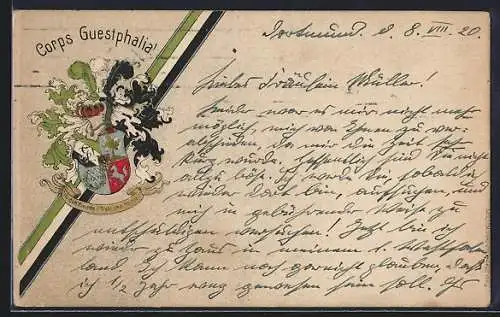 Corps Guestphalia!
Dortmund. d. 8. VIII. 20.
Liebes Fräulein Müller!
Leider war es mir nicht mehr
möglich, mich von Ihnen zu ver-
abschieden, da mir die Zeit
kurz wurde. Hoffentlich sind Sie nicht
allzu böse. Ich werde Sie, sobald ich
wieder dort bin, aufsuchen, und
mich in gebührender Weise zu
entschuldigen versuchen! Jetzt bin ich
wieder zu Haus in meinem l. Westfalen-
land. Ich kann noch garnicht glauben, daß
ich 1/2 Jahr weg gewesen sein soll. Ihr